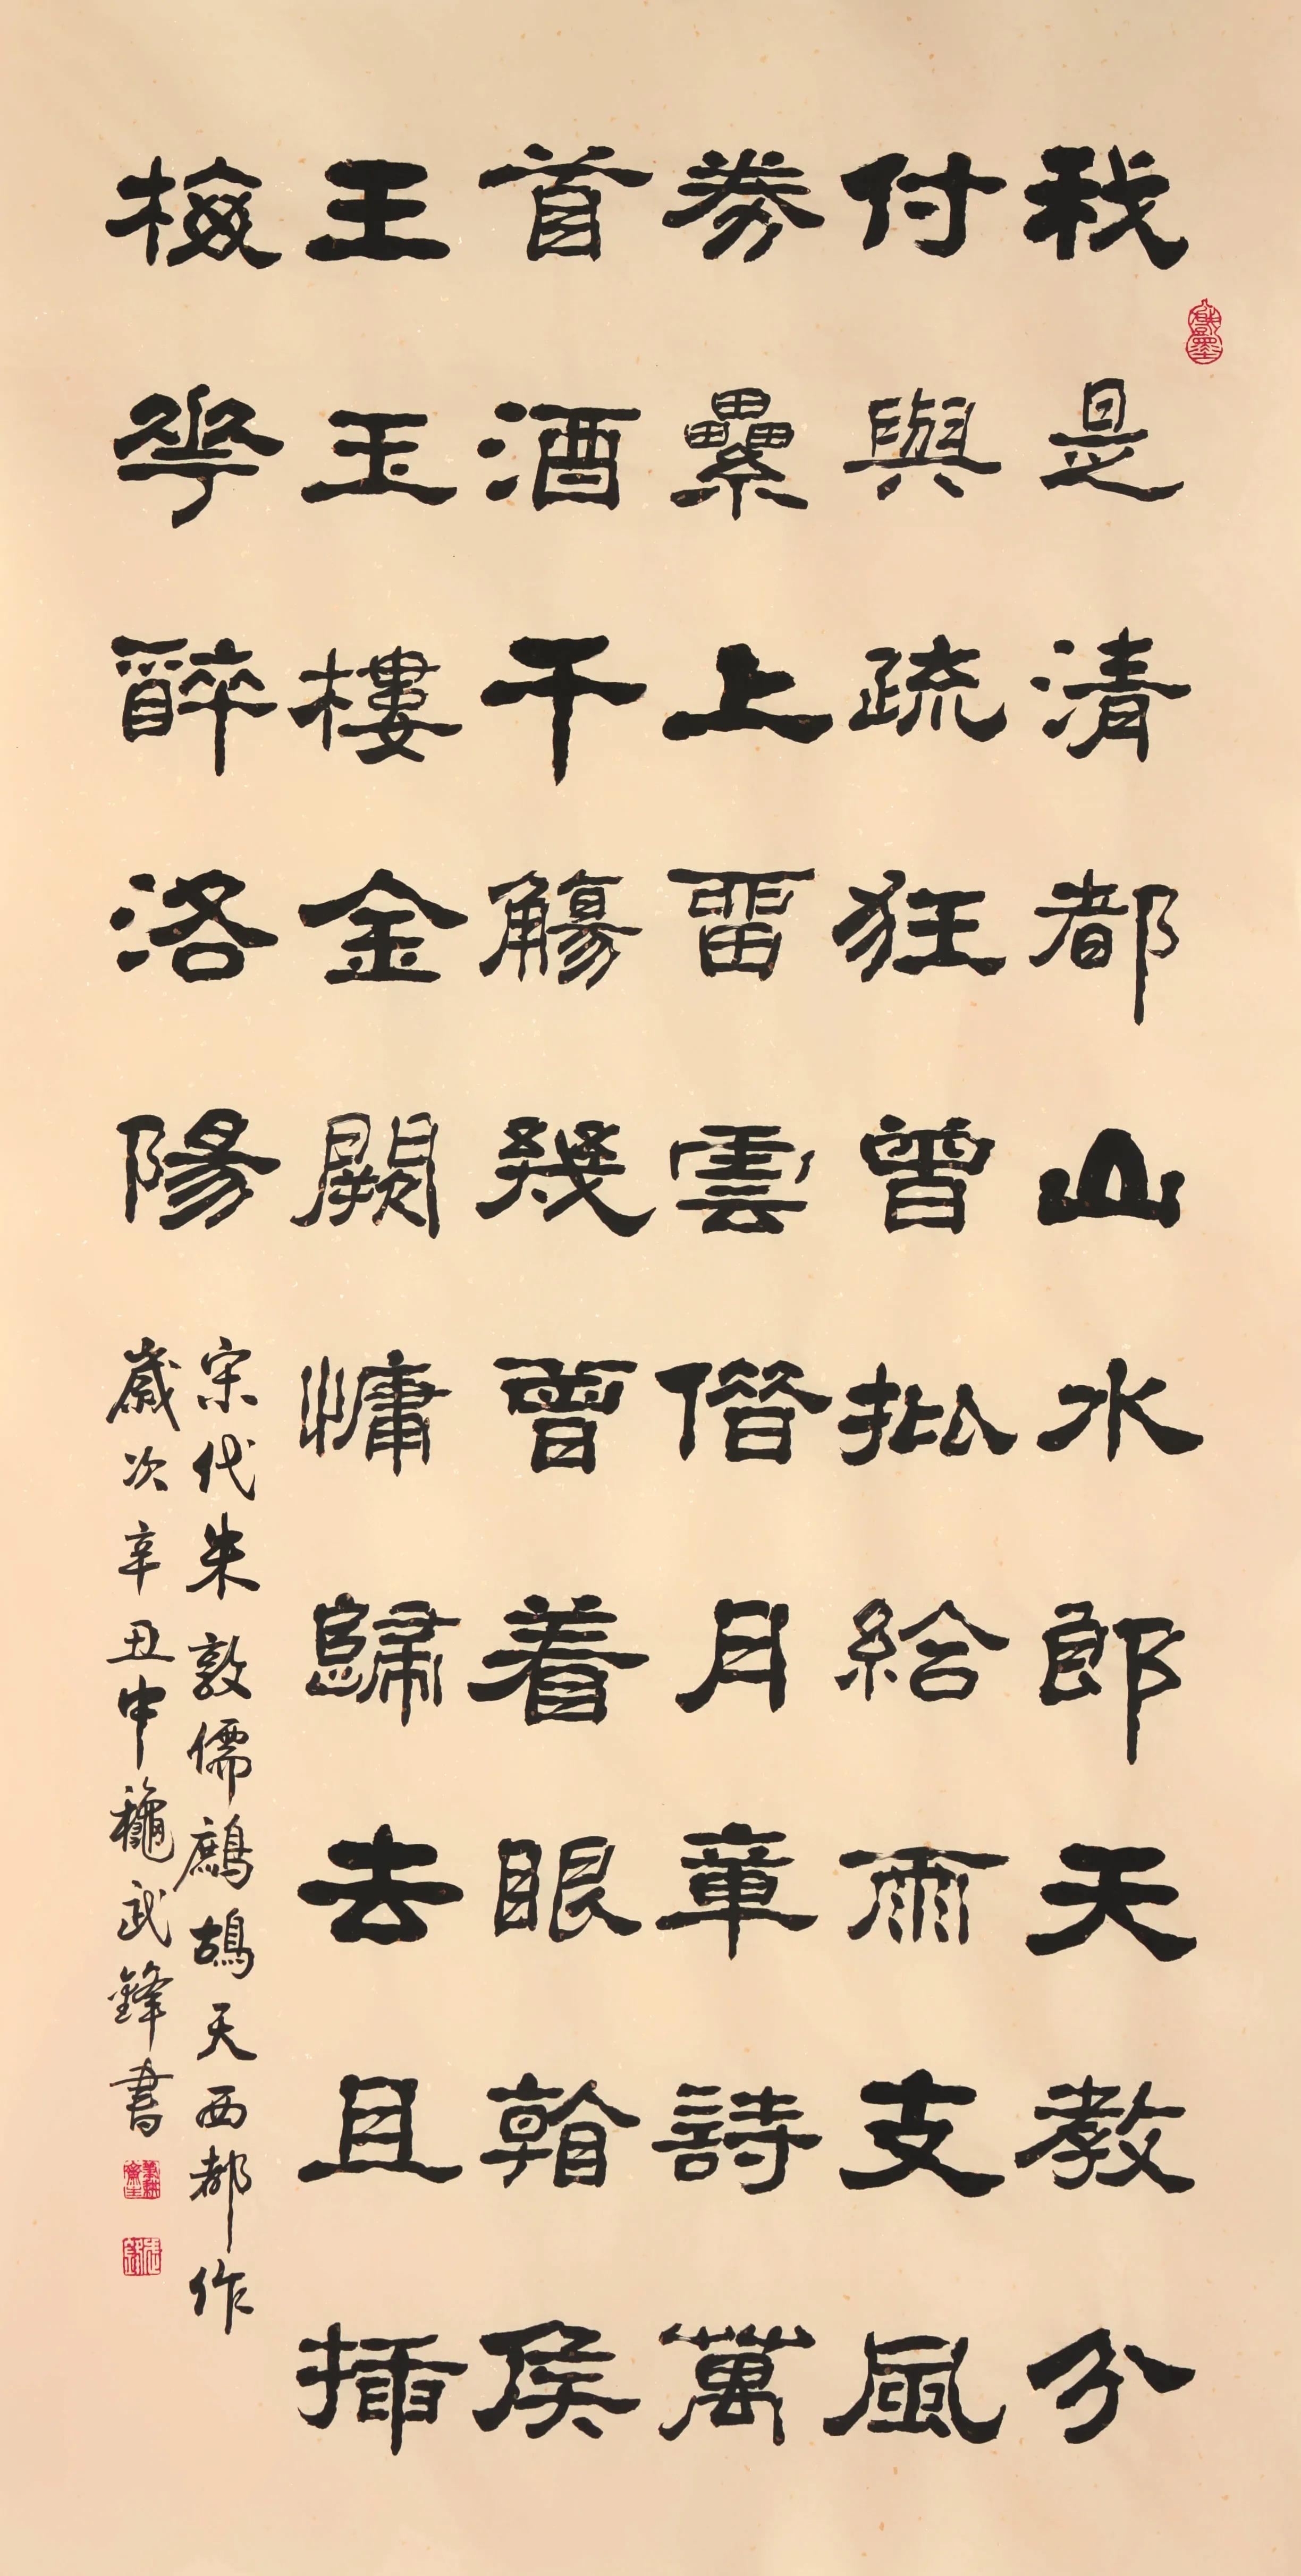 我是清都山水郎天教分
付與疏狂曾批給雨支風
券纍上留雲借月章詩萬
首酒千觴幾曾着眼看侯
王玉樓金闕慵歸去且插
梅花醉洛陽
宋代朱敦儒鷓鴣天西都作
歲次辛丑中穐武鋒書